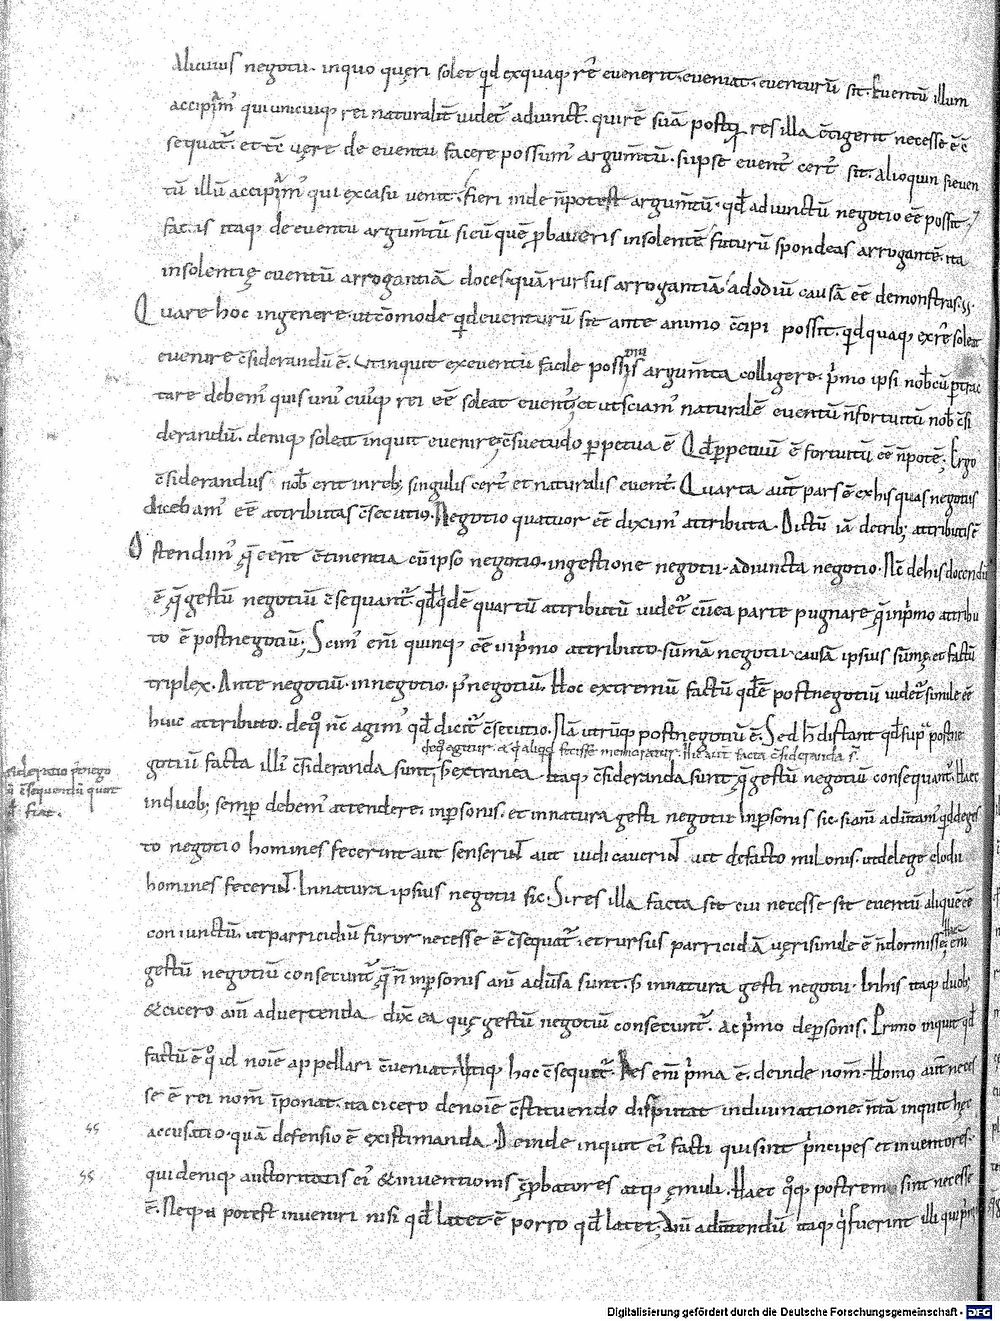 Alicuius negotii. inquo quęri solet qđ exquaq; rē evenerit. eveniat. eventurū sit. Eventū illum
accipim᾽ qui unicuiq; rei naturalit̄ videt᾽ adiunct᾽. qui rē suā postq̄ res illa c̄tigerit necesse ē ēē
sequat᾽. et tc̄ vęre de eventu facere possum᾽ argum̄tū. si ipse event᾽ cert᾽ sit. alioquin si even
tū illū accipim᾽ qui excasu venit. fieri inde n̄potest argum̄tū. qđ adiunctū negotio ēē possit.
fac. is itaq; de eventu argum̄tū si cū quē p̄baveris insolentē futurū spondeas arrogantē. ita
insolentię eventū arrogantiā doces. quā rursus arrogantiā adodiū causā ēē demonstras.
Quare hoc ingenere. ut c̄omode qđ eventurū sit ante animo c̄cipi possit. qđ quaq; exrē soleat
evenire c̄siderandū ē. Ut inquit exeventu facile possis argum̄ta colligere. p̄mo ipsi nob̄cū ptrac
tare debem᾽ quis uni᾽ cui᾽q; rei ēē soleat event᾽. et ut sciam᾽ naturalē eventū n̄fortuitū nob̄ c̄si
derandū. deniq; soleat inquit evenire. c̄suetudo perpetua ē Qđ ppetuū ē fortuitū ēē n̄potē. Ergo
c̄siderandus nob̄ erit inreb; singulis cert᾽ et naturalis event᾽. Quarta aut̄ pars ē exhis quas negotiis
dicebam᾽ ēē attributas c̄secutio. Negotio quatuor ēē dixim᾽ attributa. Dictū iā detrib; attributis ē
Ostendim᾽ q̄ cent̄ c̄tinentia cū ipso negotio. ingestione negotii. adiuncta negotio. Nc̄ dehis docendū
ē q̄ gestū negotiū c̄sequant᾽. qđ qdē quartū attributū videt᾽ cū ea parte pugnare q̄ inp̄mo attribu
to ē post negotiū; Scim᾽ eni quinq; ēē inp̄mo attributo. sūmā negotii causā ipsius sūmę. et factū
triplex. Ante negotiū. in negotio. p᾽ negotiū. Hoc extremū factū qđ ē postnegotiū videt᾽ simile ēē
huic attributo. deq̊ nc̄ agim᾽ qđ dicit᾽ c̄secutio. Nā utrūq; postnegotiū ē. Sed h̄ distant qđ sup̄ postne
deq̊ agitur. a᾽ q̄ aliqđ fecisse memoratur. Hic aut̄ facta c̄sideranda s̄.
gotiū facta illi᾽ c̄sideranda sunt. s; extranea itaq; c̄sideranda sunt q̄ gestū negotiū consequant᾽. Haec
sideratio p᾽nego
ū c̄sequendū quit
đ fiat.
induob; semp̄ debem᾽ attendere. inpsonis. et innatura gesti negotii Inpsonis sic. si anī advtam᾽ qđ degęs
to negotio homines fecerint aut senserint aut iudicaverint ut defacto milonis. ut delege clodii
homines fecerint. Innatura ipsius negotii sic. Si res illa facta sit cui necesse sit eventū aliquē ēē
coniunctū. ut parricidiū furor necesse ē c̄sequat᾽. et rursus parricidā vęrisimile ē n̄dormisse.
gestū negotiū consecunt᾽ q̄ n̄ inpsonis anī advsa sunt. s; innatura gesti negotii. Inhis itaq; duob;
& cicero anī advertenda dix̄ ea quę gestū negotiū consecunt᾽. Ac p̄mo depsonis. Primo inquit qđ
factū ē q̊ id noīe appellari c̄veniat. Utiq; hoc c̄sequit᾽. Res enī p̄ma ē. deinde nom̄. Homo aut̄ neces
se ē rei nom̄ īponat. ita cicero denoīe c̄stituendo disputat indivinatione. n̄tā inquit hęc
accusatio. quā defensio ē existimanda. Deinde inquit ei᾽ facti qui sint p̄ncipes et inventores.
qui deniq; auctoritatis ei᾽ & inventionis c̄pbatores atq; ęmuli. Haec q̊q; postremo sint necesse
ē. Neq; n̄ potest inveniri nisi qđ latet. ē porro qđ latet. Anī advtendū itaq; q̄ fuerint illi qui pri
Digitalisierung gefördert durch die Deutsche Forschungsgemeinschaft - DFG